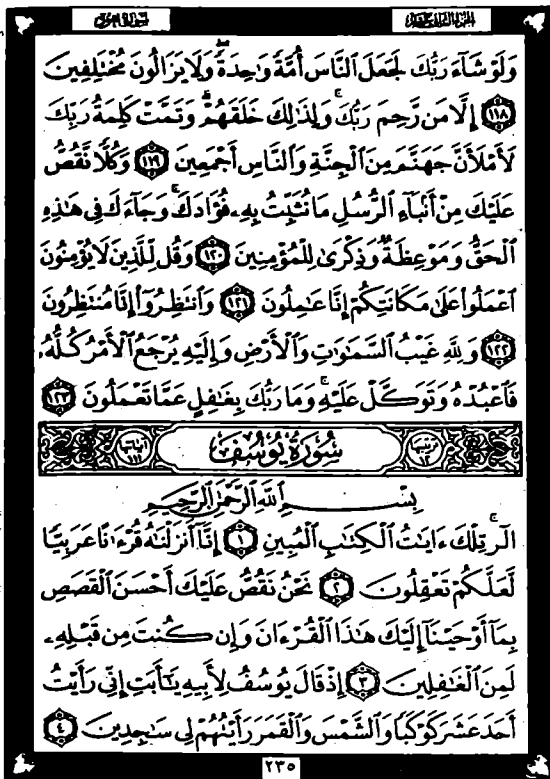 الجزء الثاني عشر سورة هود
وَلَوْ شَآءَ رَبُّكَ لَجَعَلَ ٱلنَّاسَ أُمَّةً وَٰحِدَةً ۖ وَلَا يَزَالُونَ مُخْتَلِفِينَ
١١٨ إِلَّا مَن رَّحِمَ رَبُّكَ ۚ وَلِذَٰلِكَ خَلَقَهُمْ ۗ وَتَمَّتْ كَلِمَةُ رَبِّكَ
لَأَمْلَأَنَّ جَهَنَّمَ مِنَ ٱلْجِنَّةِ وَٱلنَّاسِ أَجْمَعِينَ ١١٩ وَكُلًّا نَّقُصُّ
عَلَيْكَ مِنْ أَنۢبَآءِ ٱلرُّسُلِ مَا نُثَبِّتُ بِهِۦ فُؤَادَكَ ۚ وَجَآءَكَ فِى هَٰذِهِ
ٱلْحَقُّ وَمَوْعِظَةٌ وَذِكْرَىٰ لِلْمُؤْمِنِينَ ١٢٠ وَقُل لِّلَّذِينَ لَا يُؤْمِنُونَ
ٱعْمَلُوا۟ عَلَىٰ مَكَانَتِكُمْ إِنَّا عَٰمِلُونَ ١٢١ وَٱنتَظِرُوٓا۟ إِنَّا مُنتَظِرُونَ
١٢٢ وَلِلَّهِ غَيْبُ ٱلسَّمَٰوَٰتِ وَٱلْأَرْضِ وَإِلَيْهِ يُرْجَعُ ٱلْأَمْرُ كُلُّهُۥ
فَٱعْبُدْهُ وَتَوَكَّلْ عَلَيْهِ ۚ وَمَا رَبُّكَ بِغَٰفِلٍ عَمَّا تَعْمَلُونَ ١٢٣
ترتيبها ١٢ سُورَةُ يُوسُفَ آياتها ١١١
بِسْمِ ٱللَّهِ ٱلرَّحْمَٰنِ ٱلرَّحِيمِ
الٓر ۚ تِلْكَ ءَايَٰتُ ٱلْكِتَٰبِ ٱلْمُبِينِ ١ إِنَّآ أَنزَلْنَٰهُ قُرْءَٰنًا عَرَبِيًّا
لَّعَلَّكُمْ تَعْقِلُونَ ٢ نَحْنُ نَقُصُّ عَلَيْكَ أَحْسَنَ ٱلْقَصَصِ
بِمَآ أَوْحَيْنَآ إِلَيْكَ هَٰذَا ٱلْقُرْءَانَ وَإِن كُنتَ مِن قَبْلِهِۦ
لَمِنَ ٱلْغَٰفِلِينَ ٣ إِذْ قَالَ يُوسُفُ لِأَبِيهِ يَٰٓأَبَتِ إِنِّى رَأَيْتُ
أَحَدَ عَشَرَ كَوْكَبًا وَٱلشَّمْسَ وَٱلْقَمَرَ رَأَيْتُهُمْ لِى سَٰجِدِينَ ٤
٢٣٥